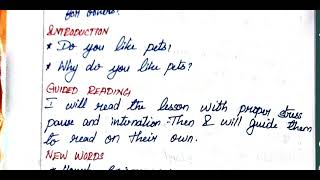 for others.
INTRODUCTION
* Do you like pets?
* Why do you like pets?
GUIDED READING:
I will read the lesson with proper stress
pause and intonation. Then I will guide them
to read on their own.
NEW WORDS